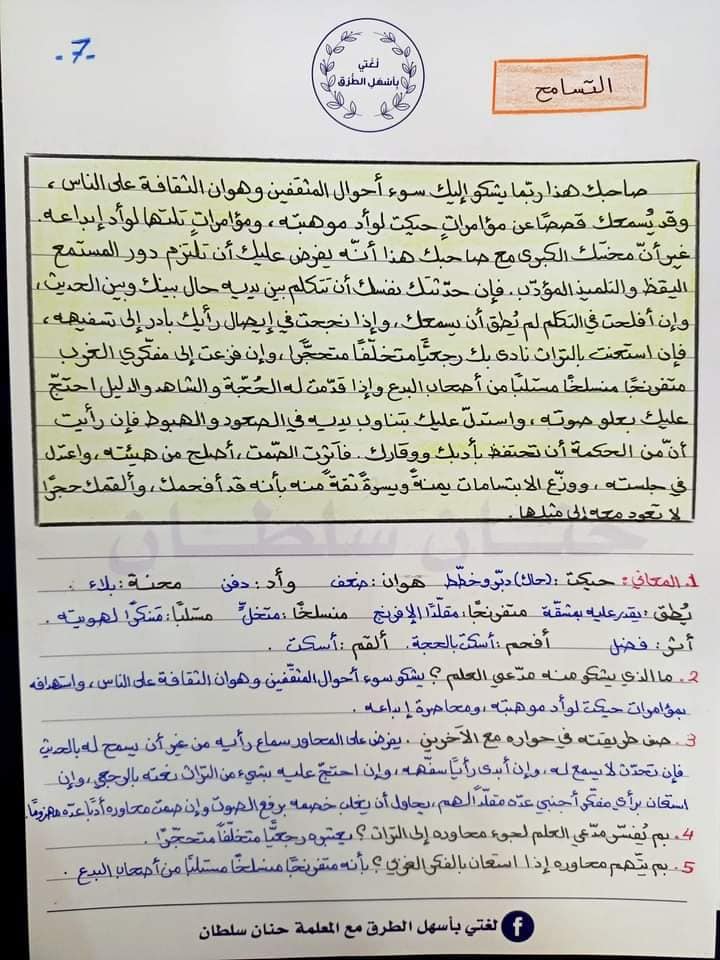 -7-
لغتي
بأسهل الطرق
التسامح
صاحبك هذا ربّما يشكو إليك سوء أحوال المثقفين وهوان الثقافة على الناس ،
وقد يُسمعك قصصًا عن مؤامراتٍ حيكت لوأد موهبته ، ومؤامراتٍ تلتها لوأد إبداعه.
غير أنّ محنتك الكبرى مع صاحبك هذا أنّه يفرض عليك أن تلتزم دور المستمع
اليقظ والتلميذ المؤدّب. فإن حدّثتك نفسك أن تتكلم بين يديه حال بينك وبين الحديث،
وإن أفلحت في التكلم لم يُطق أن يسمعك، وإذا نجحت في إيصال رأيك بادر إلى تسفيهه ،
فإن استعنت بالتراث نادى بك رجعيًّا متخلّفًا متحجّرًا ، وإن فزعت إلى مفكّري الغرب
متفرنجًا منسلخًا مستلبًا من أصحاب البدع وإذا قدّمت له الحُجّة والشاهد والدليل احتجّ
عليك بعلو صوته ، واستدلّ عليك بتناوب يديه في الصعود والهبوط فإن رأيت
أنّ من الحكمة أن تحتفظ بأدبك ووقارك. فآثرت الصّمت ، أصلح من هيئته ، واعتدل
في جلسته ، ووزّع الابتسامات يمنةً ويسرةً ثقةً منه بأنه قد أفحمك ، وألقمك حجرًا
لا تعود معه إلى مثلها .
حنان سلطان
1. المعاني: حيكت (حاك): دبّر وخطّط هوان: ضعف وأد: دفن محنة: بلاء .
يُطق: يقدر عليه بمشقّة متفرنجًا: مقلّدًا الإفرنج منسلخًا: متخلٍّ مستلبًا: متنكّرًا لهويته .
آثر: فضل أفحم: أسكت بالحجة. ألقم: أسكت .
2. ما الذي يشكو منه مدّعي العلم؟ يشكو سوء أحوال المثقّفين وهوان الثقافة على الناس ، واستهدافه
بمؤامرات حيكت لوأد موهبته ، ومحاصرة إبداعه .
3. صف طريقته في حواره مع الآخرين . يفرض على المحاور سماع رأيه من غير أن يسمح له بالحديث
فإن تحدّث لا يسمع له ، وإن أبدى رأيًا سفّهه ، وإن احتجّ عليه بشيء من التراث نعته بالرجعي ، وإن
استعان برأي مفكّر أجنبي عدّه مقلّدًا لهم ، يحاول أن يغلب خصمه برفع الصوت وإن صمت محاوره أدبًا عدّه مهزومًا.
4. بم يُفسّر مدّعي العلم لجوء محاوره إلى التراث؟ يعتبره رجعيًّا متخلّفًا متحجّرًا .
5. بم يتّهم محاوره إذا استعان بالفكر الغربي؟ بأنه متفرنجًا منسلخًا مستلبًا من أصحاب البدع .
لغتي بأسهل الطرق مع المعلمة حنان سلطان